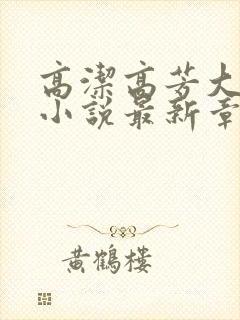 高潔高芳大
小說最新章
黃鶴樓